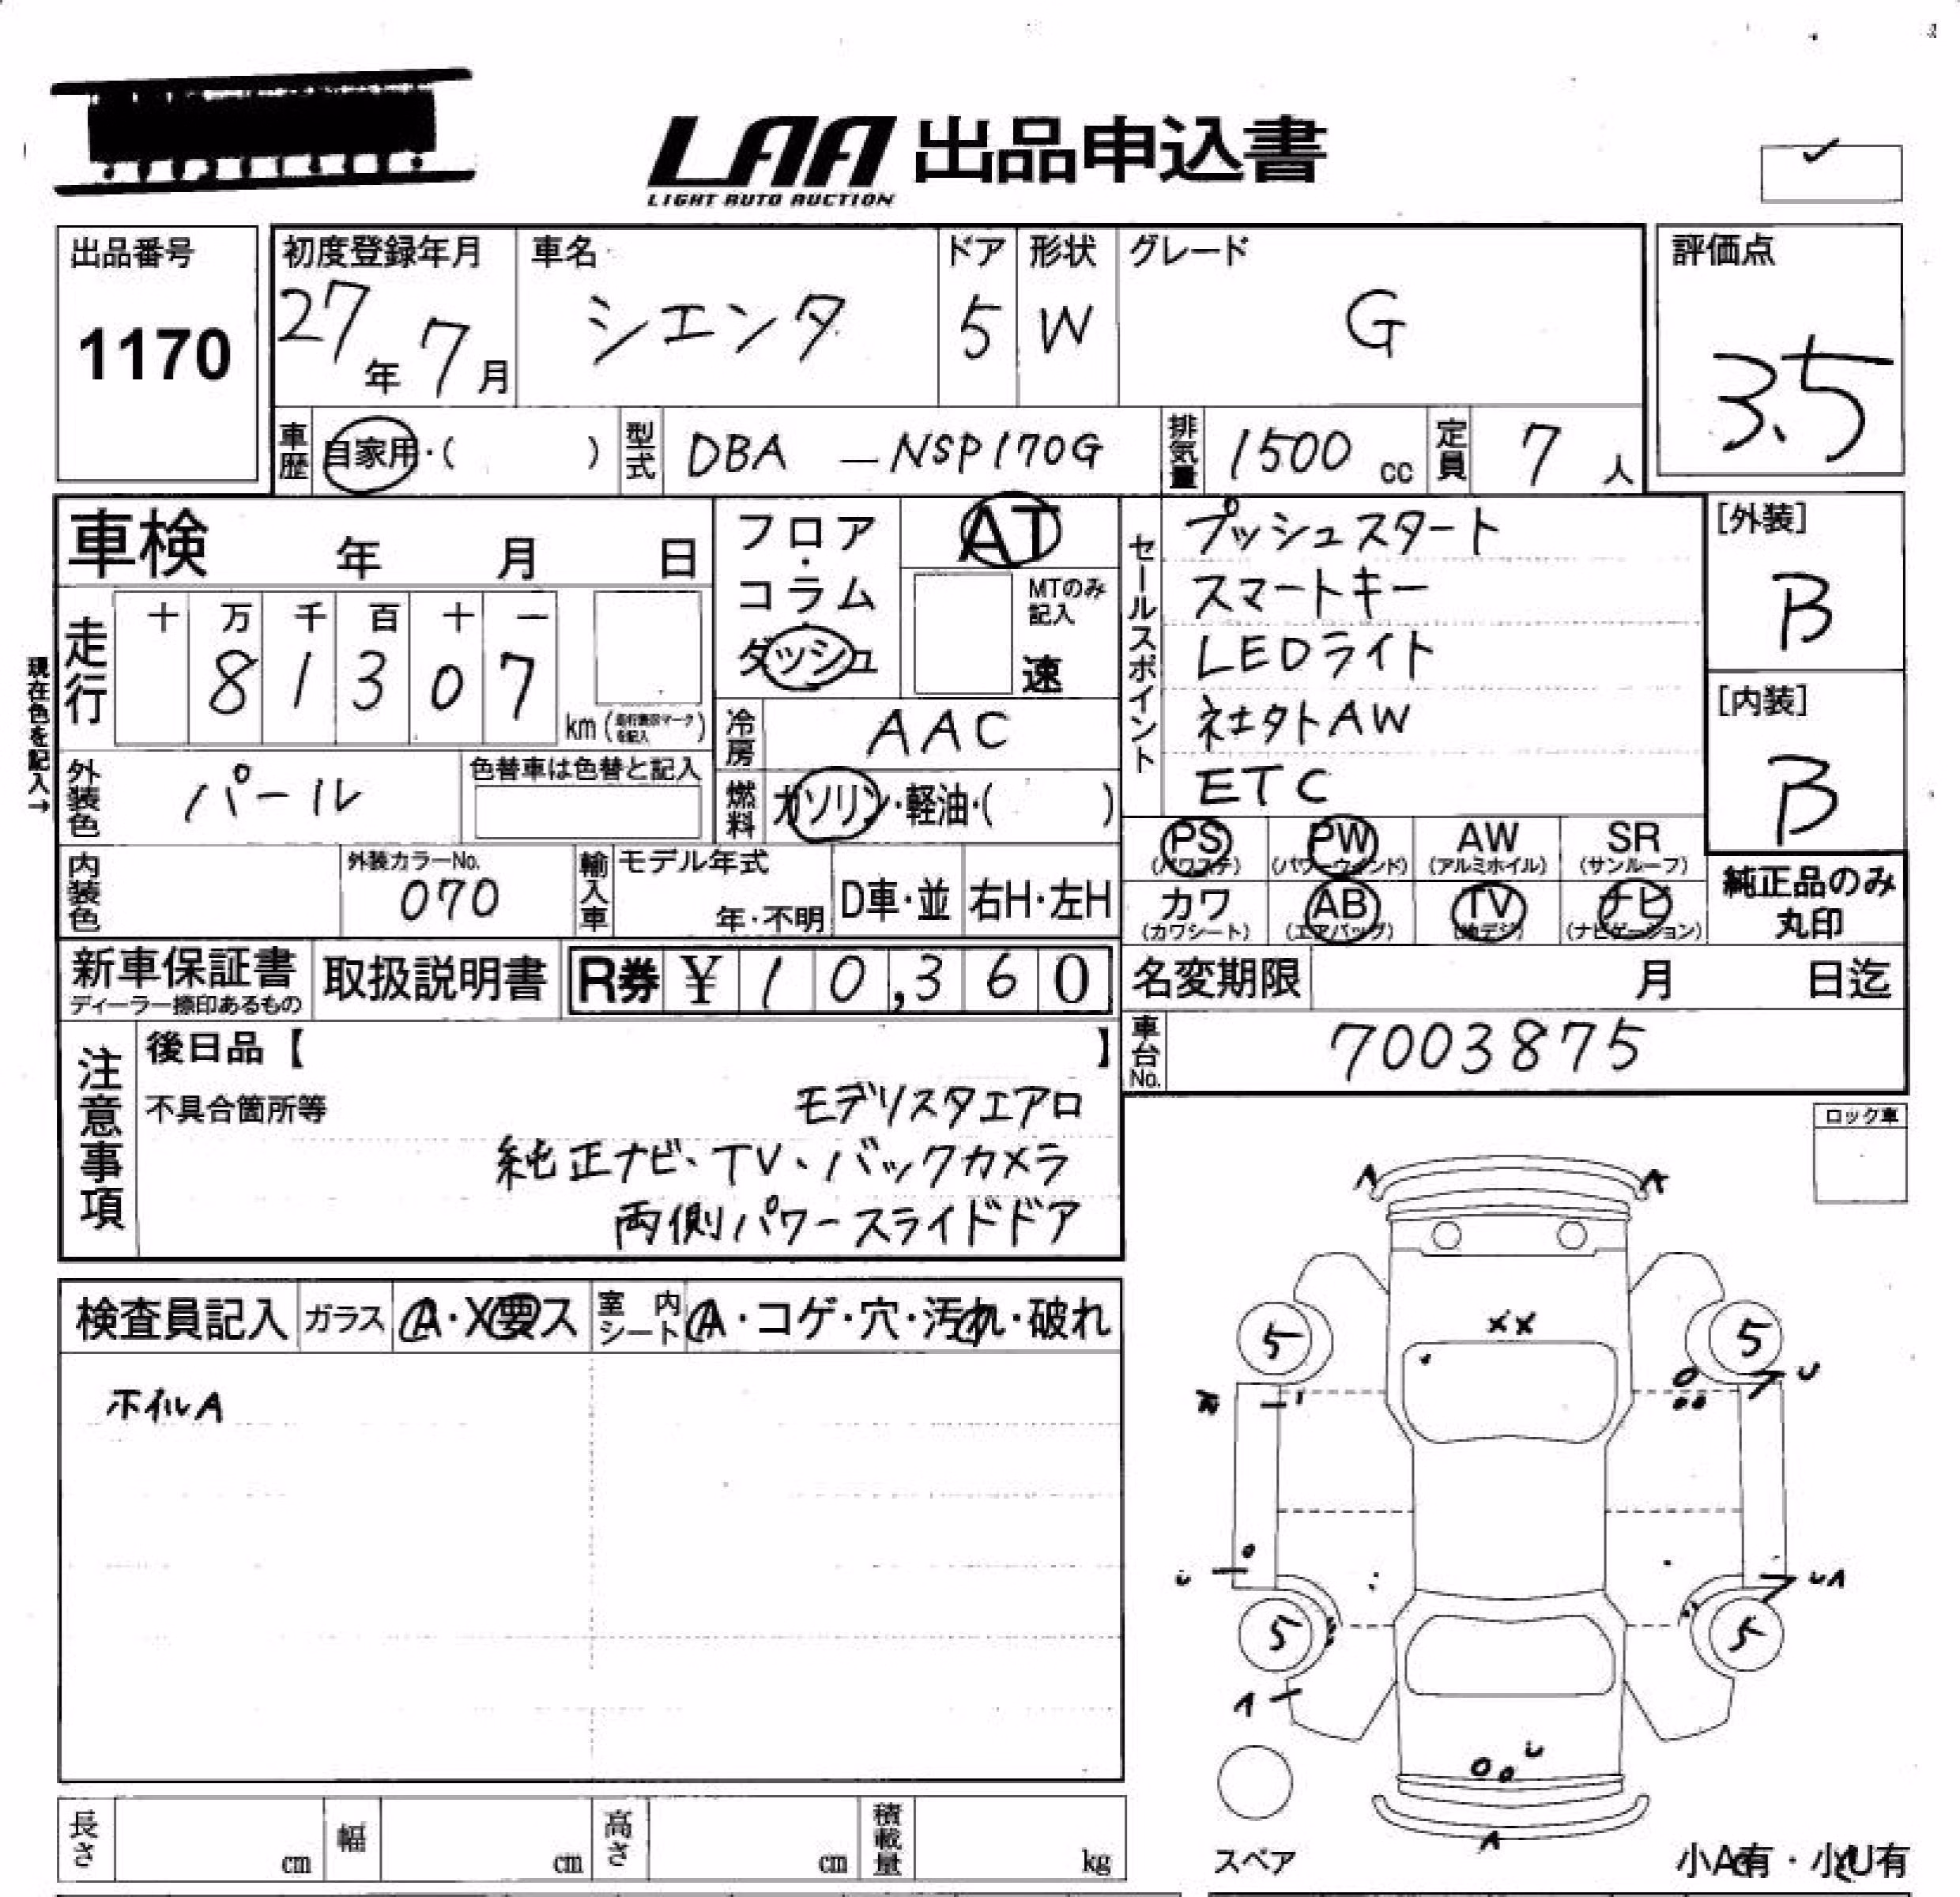 LAA 出品申込書
LIGHT AUTO AUCTION
出品番号
1170
初度登録年月
27年 7月
車名
シエンタ
ドア
5
形状
W
グレード
G
評価点
3.5
車歴
自家用・( )
型式
DBA - NSP170G
排気量
1500 cc
定員
7 人
車検 年 月 日
フロア・コラム・ダッシュ
AT
MTのみ記入
速
走行
十 万 千 百 十 一
8 1 3 0 7
km (走行箇所マークを記入)
現在色を記入→
外装色
パール
色替車は色替と記入
冷房
AAC
燃料
ガソリン・軽油・( )
セールスポイント
プッシュスタート
スマートキー
LEDライト
社外AW
ETC
[外装]
B
[内装]
B
内装色
外装カラーNo.
070
輸入車
モデル年式
年・不明
D車・並
右H・左H
PS
(パワステ)
PW
(パワーウィンド)
AW
(アルミホイル)
SR
(サンルーフ)
カワ
(カワシート)
AB
(エアバッグ)
TV
(地デジ)
ナビ
(ナビゲーション)
純正品のみ
丸印
新車保証書
ディーラー捺印あるもの
取扱説明書
R券 ¥ 1 0,3 6 0
名変期限 月 日迄
車台No.
7003875
注意事項
後日品【 】
不具合箇所等
モデリスタエアロ
純正ナビ、TV、バックカメラ
両側パワースライドドア
ロック車
検査員記入
ガラス
A・X要ス
室内シート
A・コゲ・穴・汚れ・破れ
ホイルA
A A
XX
5 5
U
U UA
5 5
A
U
A
スペア
小A有・小U有
長さ cm
幅 cm
高さ cm
積載量 kg